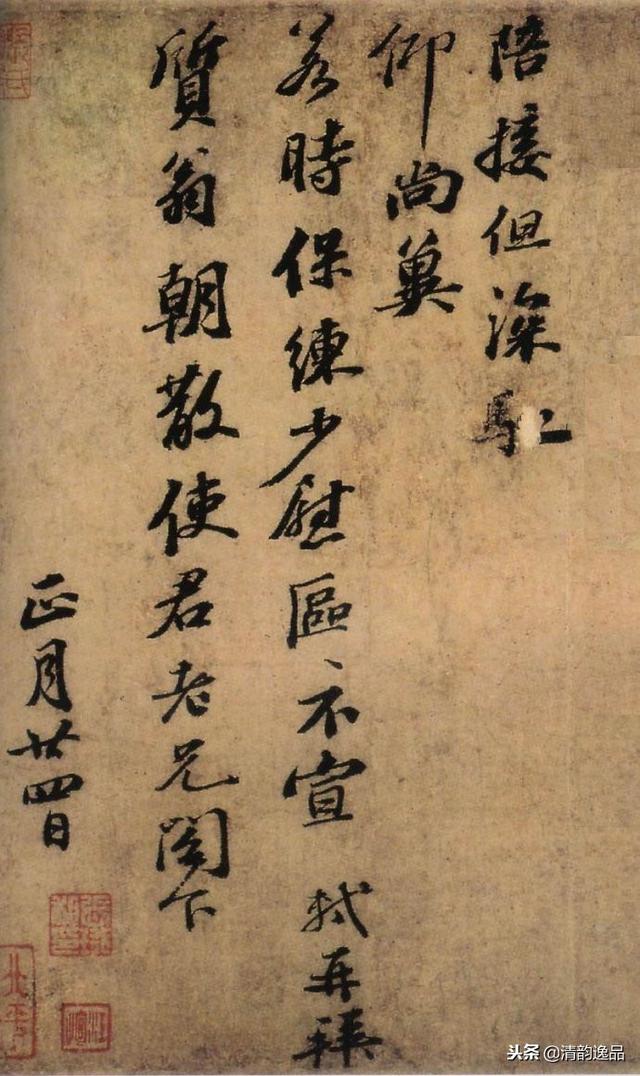 陪接但深馳
仰尚冀
若時保練少慰區、不宣 軾再拜
質翁朝散使君老兄閣下
正月廿四日
头条 @清韵逸品